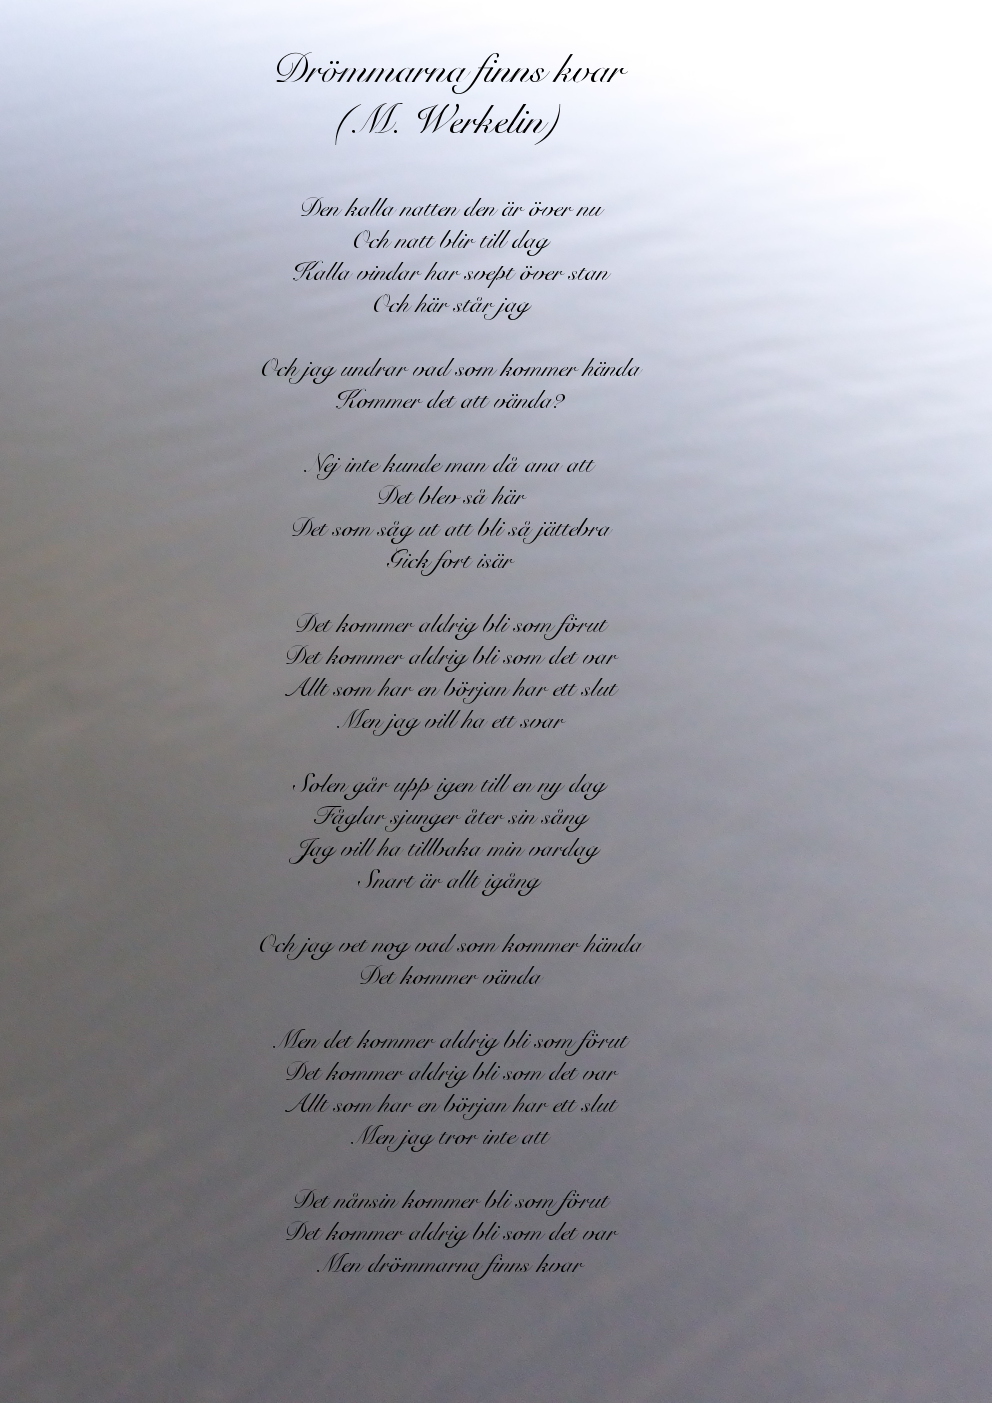 Drömmarna finns kvar
(M. Werkelin)
Den kalla natten den är över nu
Och natt blir till dag
Kalla vindar har svept över stan
Och här står jag
Och jag undrar vad som kommer hända
Kommer det att vända?
Nej inte kunde man då ana att
Det blev så här
Det som såg ut att bli så jättebra
Gick fort isär
Det kommer aldrig bli som förut
Det kommer aldrig bli som det var
Allt som har en början har ett slut
Men jag vill ha ett svar
Solen går upp igen till en ny dag
Fåglar sjunger åter sin sång
Jag vill ha tillbaka min vardag
Snart är allt igång
Och jag vet nog vad som kommer hända
Det kommer vända
Men det kommer aldrig bli som förut
Det kommer aldrig bli som det var
Allt som har en början har ett slut
Men jag tror inte att
Det nånsin kommer bli som förut
Det kommer aldrig bli som det var
Men drömmarna finns kvar